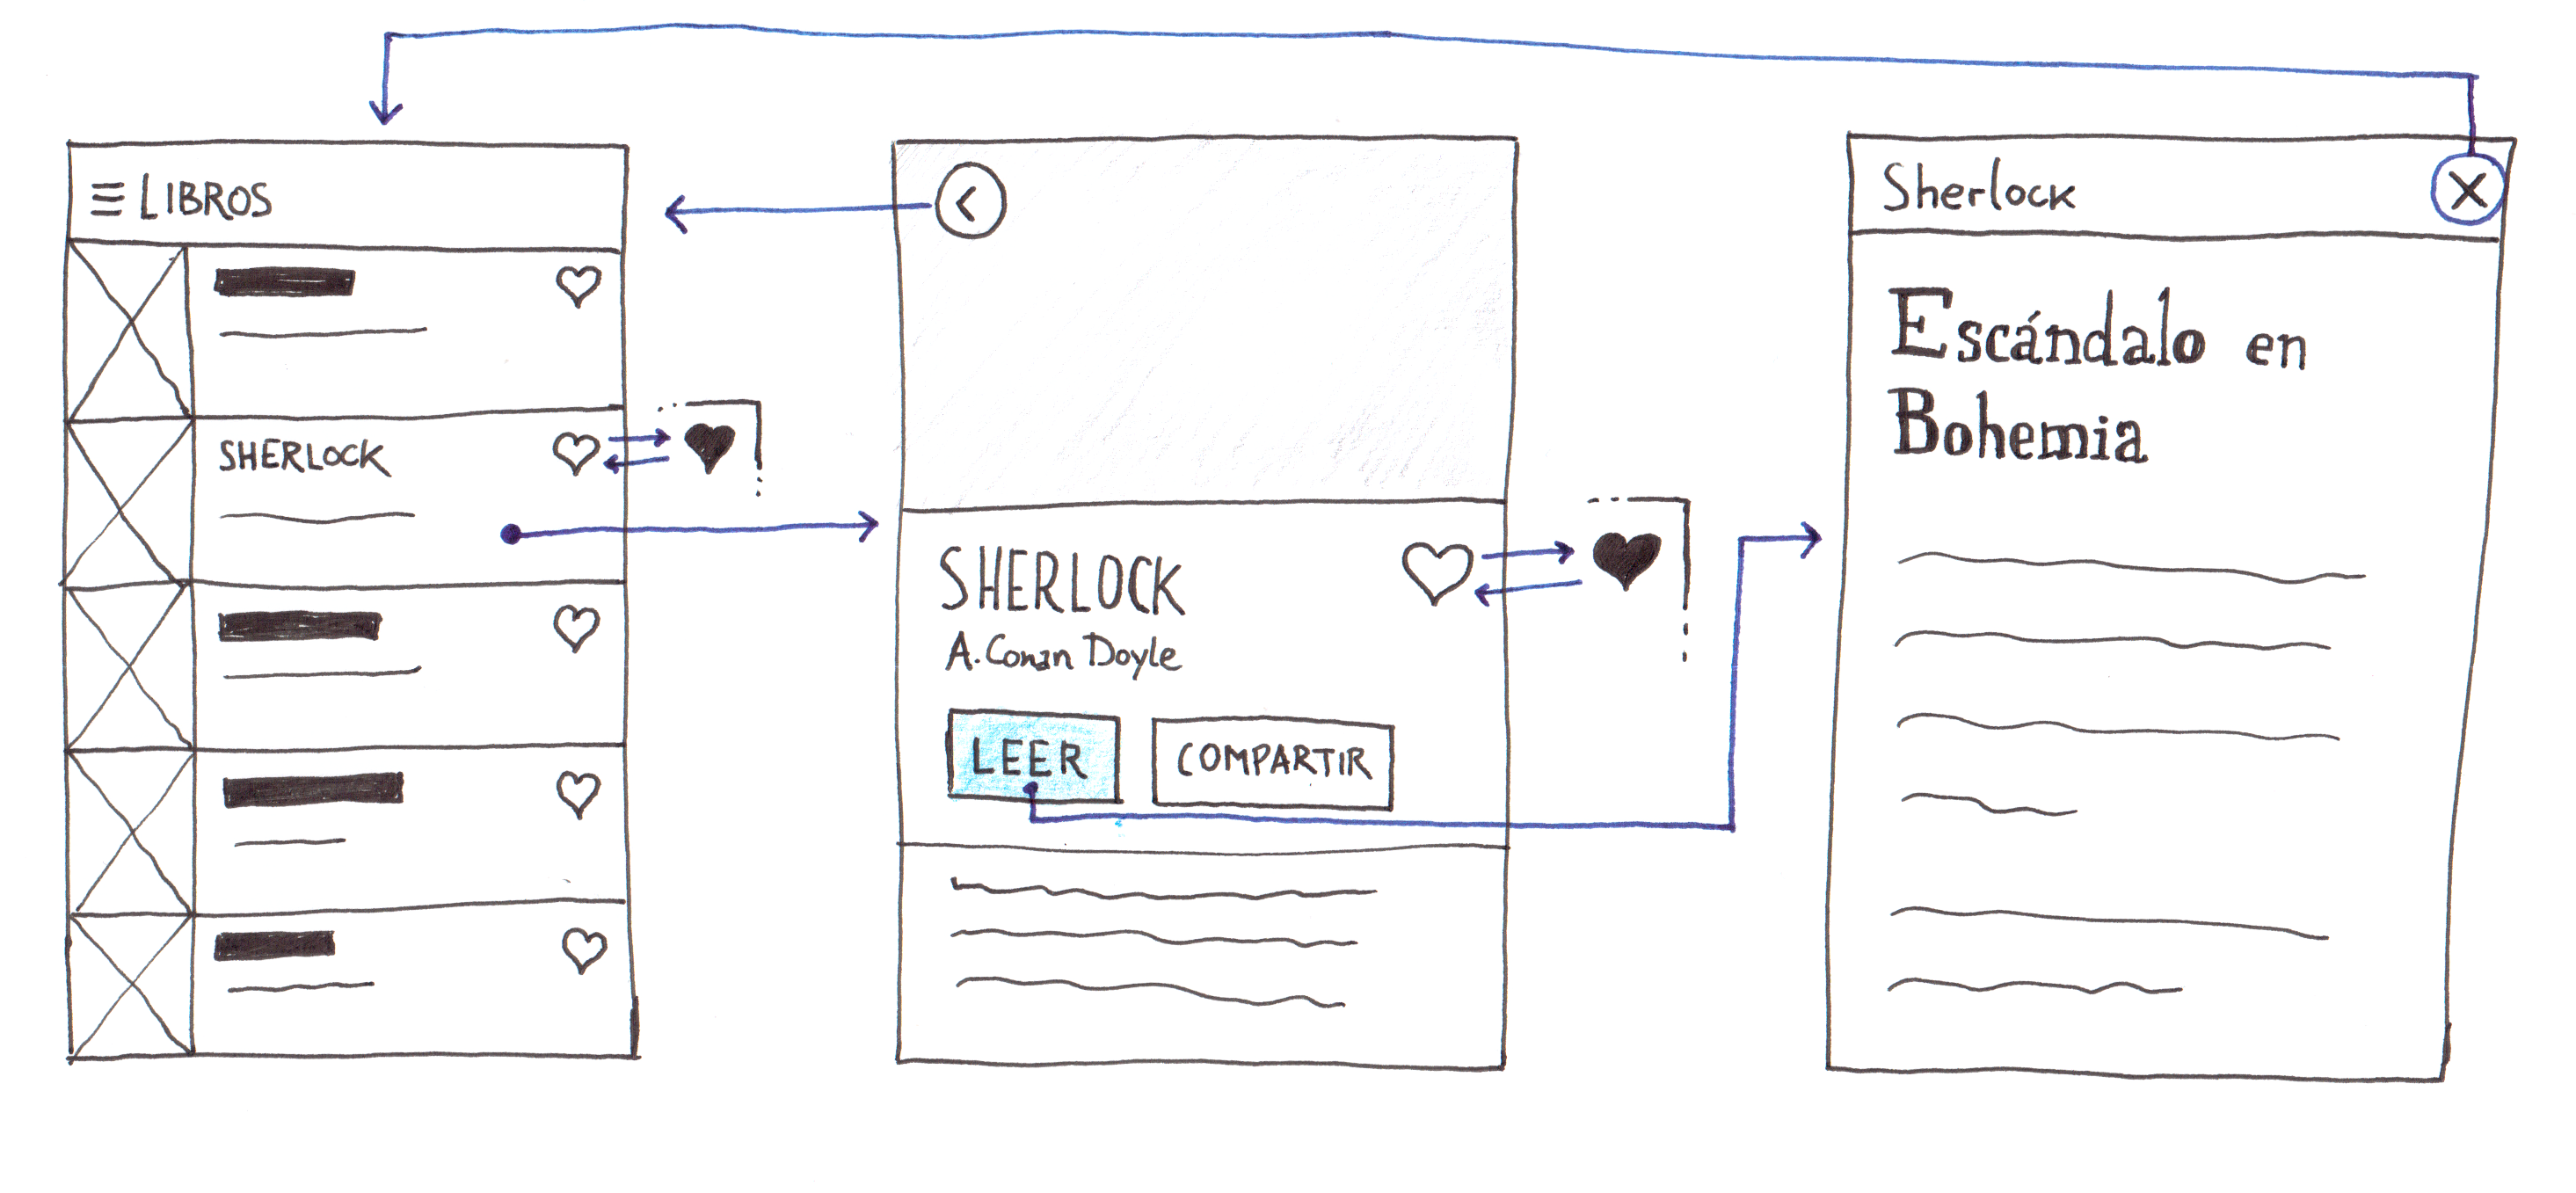 LIBROS
SHERLOCK
SHERLOCK
A. Conan Doyle
LEER
COMPARTIR
Sherlock
Escándalo en
Bohemia